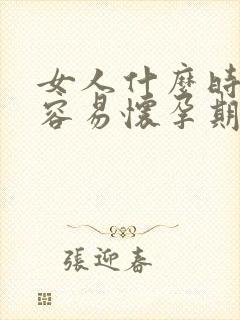 女人什麼時
容易懷孕期
張迎春